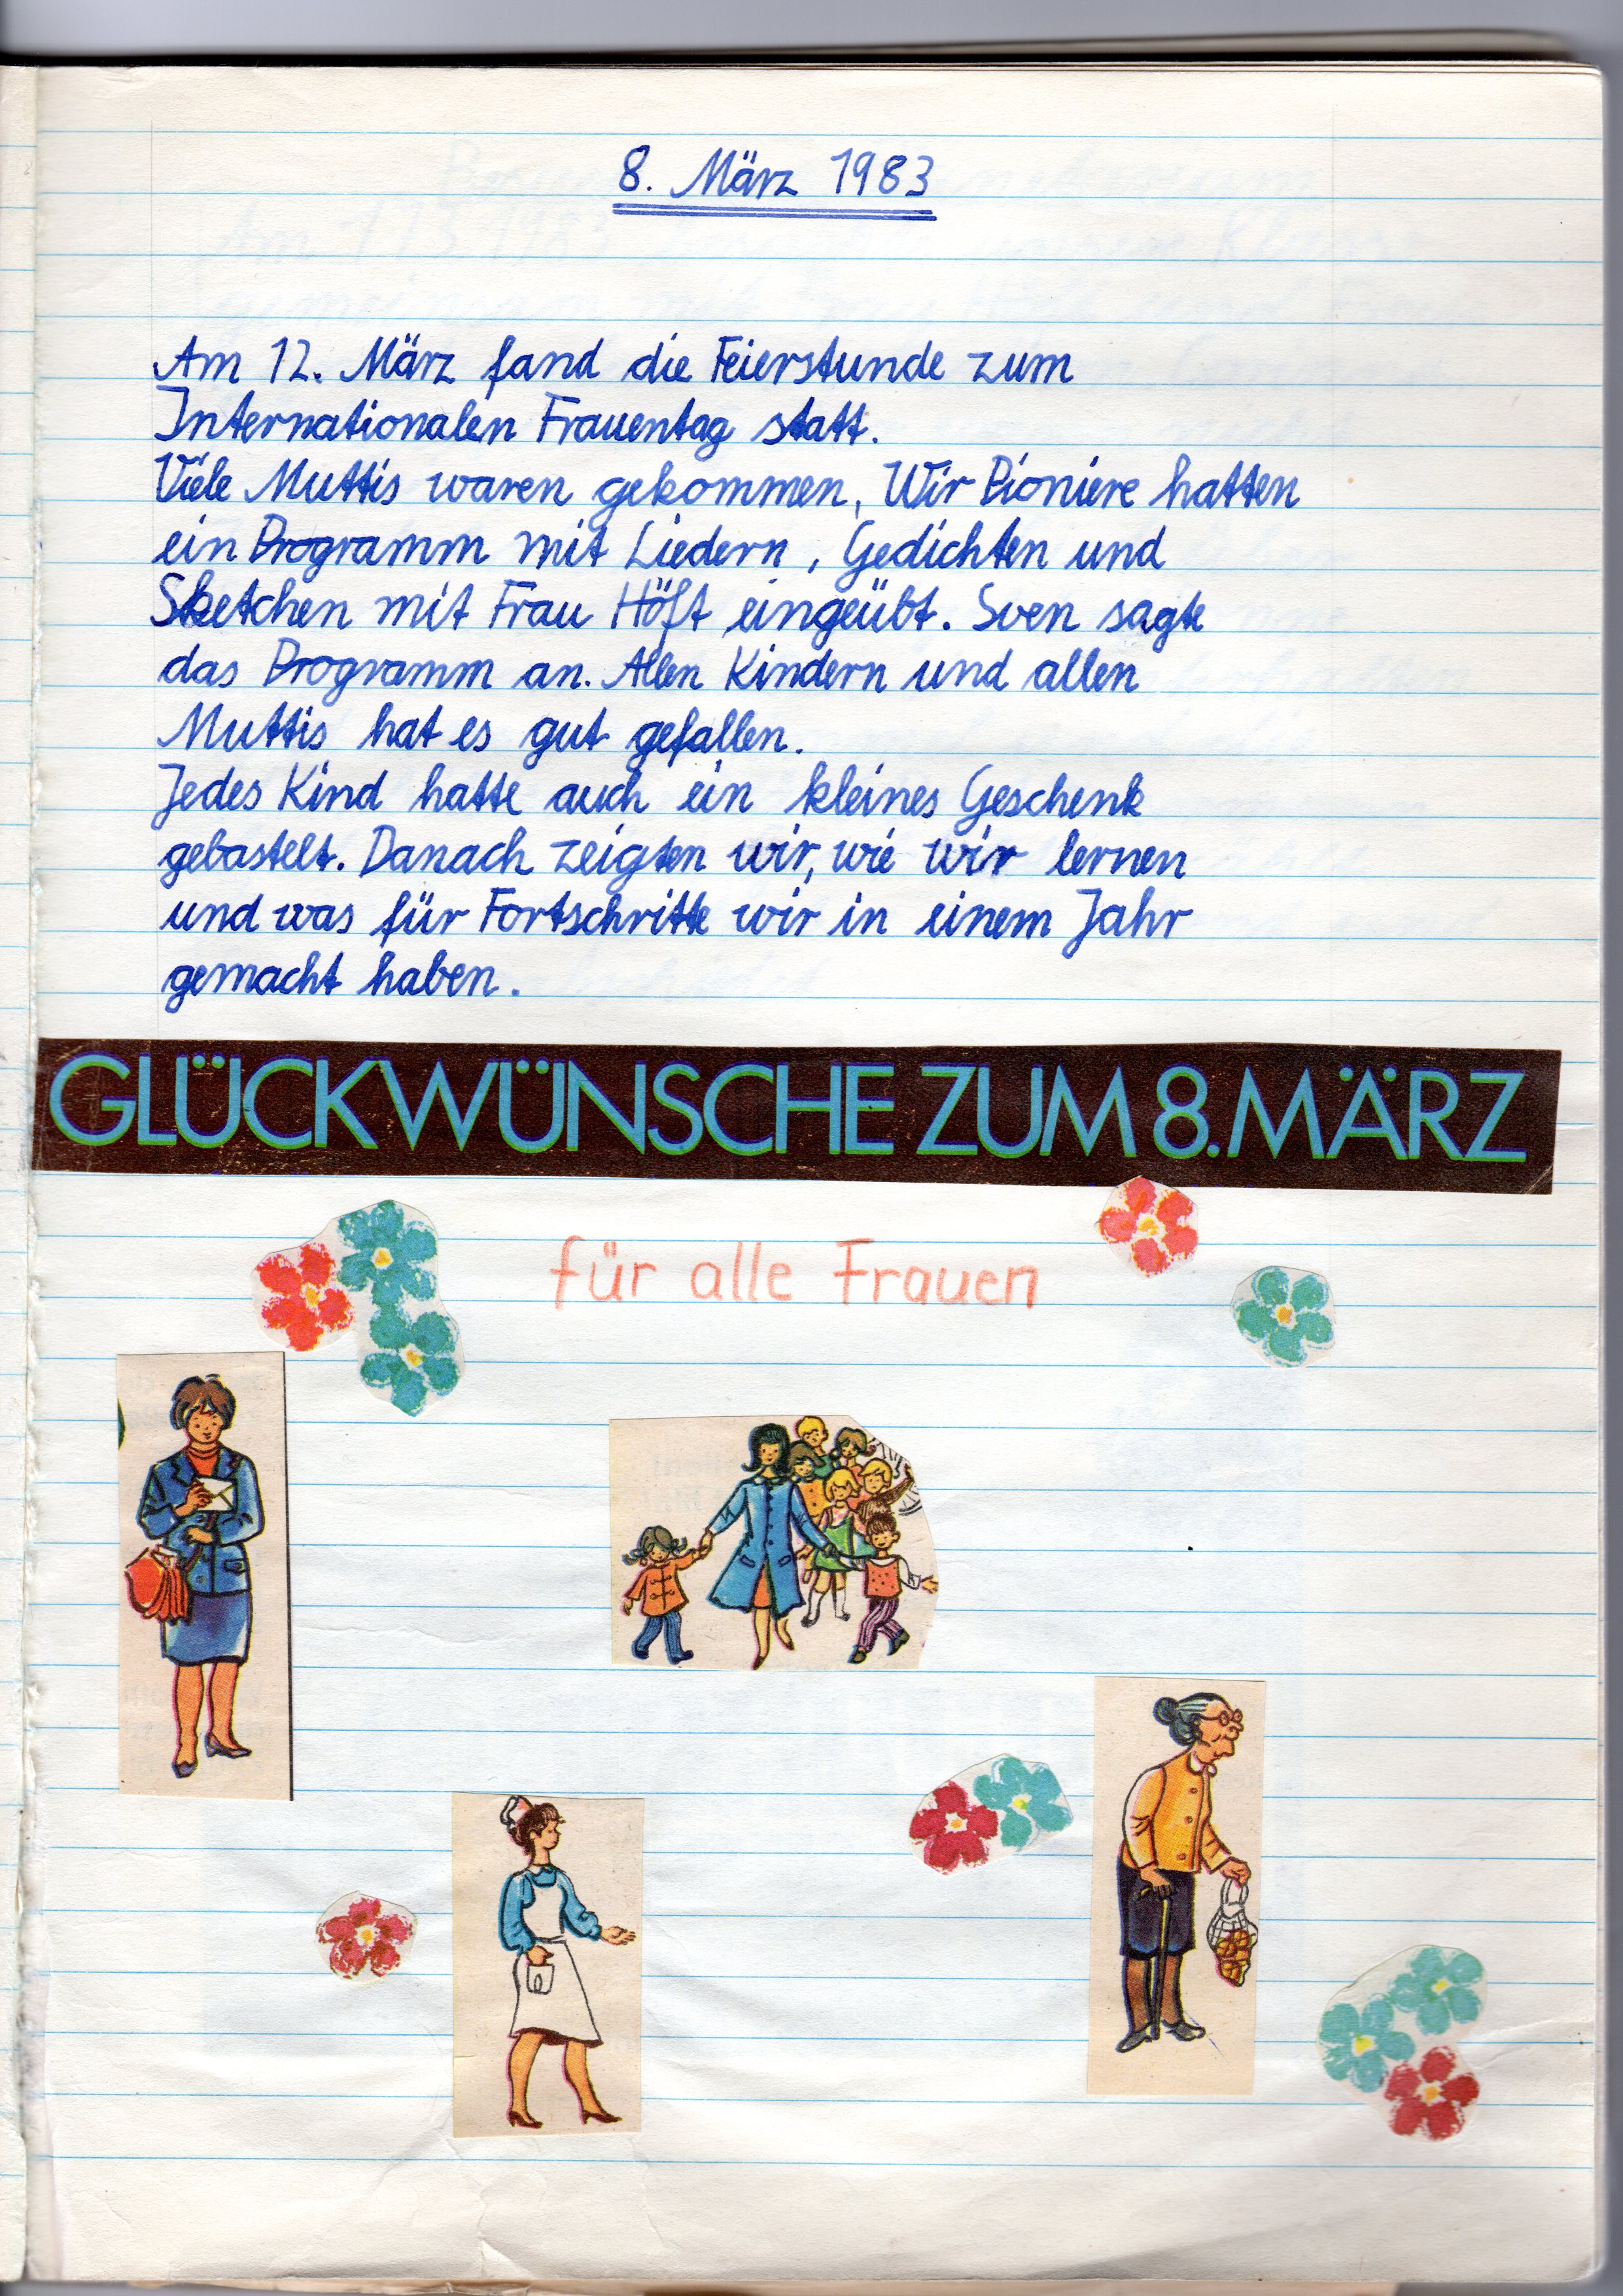 8. März 1983
Am 12. März fand die Feierstunde zum
Internationalen Frauentag statt.
Viele Muttis waren gekommen. Wir Pioniere hatten
ein Programm mit Liedern, Gedichten und
Sketchen mit Frau Höft eingeübt. Sven sagte
das Programm an. Allen Kindern und allen
Muttis hat es gut gefallen.
Jedes Kind hatte auch ein kleines Geschenk
gebastelt. Danach zeigten wir, wie wir lernen
und was für Fortschritte wir in einem Jahr
gemacht haben.
GLÜCKWÜNSCHE ZUM 8. MÄRZ
für alle Frauen